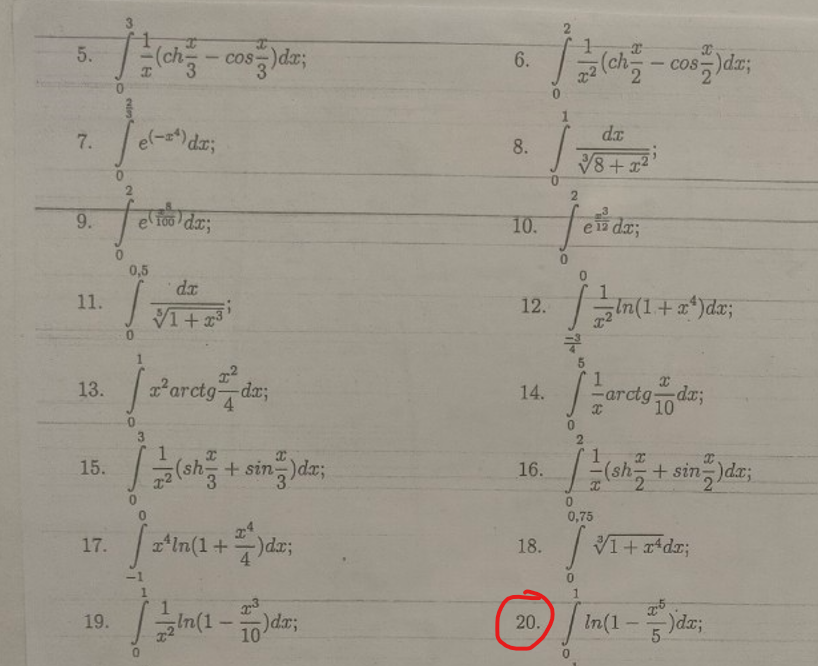 5. ∫₀³ 1/x (ch x/3 − cos x/3)dx;
6. ∫₀² 1/x² (ch x/2 − cos x/2)dx;
7. ∫₀^(2/3) e^(−x⁴) dx;
8. ∫₀¹ dx/∛(8 + x²);
9. ∫₀² e^(x⁸/100) dx;
10. ∫₀² e^(x³/12) dx;
11. ∫₀^(0,5) dx/⁵√(1 + x³);
12. ∫_(−3/4)^0 1/x² ln(1 + x⁴)dx;
13. ∫₀¹ x² arctg x²/4 dx;
14. ∫₀⁵ 1/x arctg x/10 dx;
15. ∫₀³ 1/x² (sh x/3 + sin x/3)dx;
16. ∫₀² 1/x (sh x/2 + sin x/2)dx;
17. ∫₋₁⁰ x⁴ ln(1 + x⁴/4)dx;
18. ∫₀^(0,75) ∛(1 + x⁴) dx;
19. ∫₀¹ 1/x² ln(1 − x³/10)dx;
20. ∫₀¹ ln(1 − x⁵/5)dx;